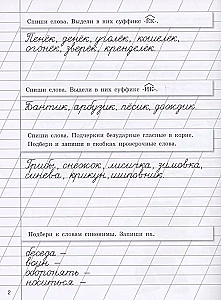 Спиши слова. Выдели в них суффикс -ЕК-.
Пенёк, денёк, уголёк, кошелек,
огонёк, зверёк, кренделёк.
Спиши слова. Выдели в них суффикс -ИК-.
Бантик, арбузик, пёсик, дождик.
Спиши слова. Подчеркни безударные гласные в корне.
Подбери и запиши в скобках проверочные слова.
Грибы, снежок, лисичка, зимовка,
синева, крикун, шиповник.
Подбери к словам синонимы. Запиши их.
беседа –
воин –
оборонять –
носиться –
2